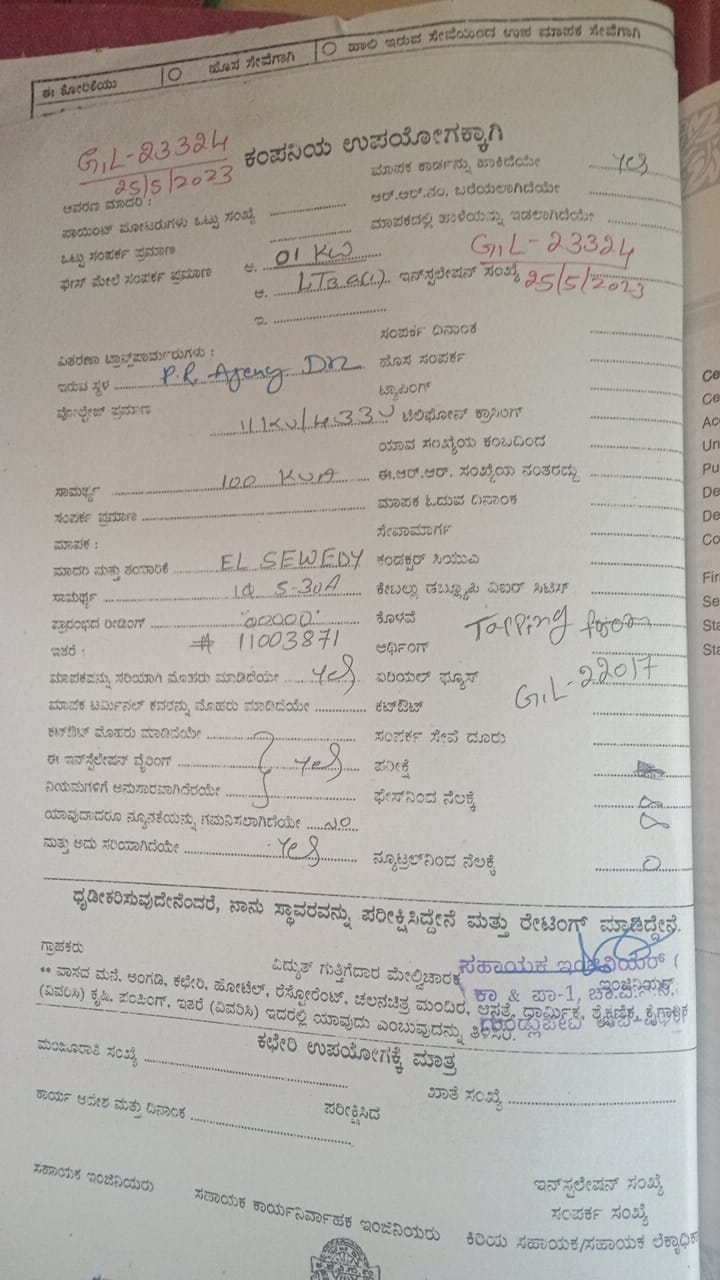 ಈ ಕೋರಿಕೆಯು ಹೊಸ ಸೇವೆಗಾಗಿ ಹಾಲಿ ಇರುವ ಸೇವೆಯಿಂದ ಉಪ ಮಾಪಕ ಸೇವೆಗಾಗಿ
GIL-23324
25/5/2023
ಕಂಪನಿಯ ಉಪಯೋಗಕ್ಕಾಗಿ
ಮಾಪಕ ಕಾರ್ಡನ್ನು ಹಾಕಿದೆಯೇ Yes
ಆವರಣ ಮಾದರಿ :
ಆರ್.ಆರ್.ನಂ. ಬರೆಯಲಾಗಿದೆಯೇ
ಪಾಯಿಂಟ್ ಮೋಟರುಗಳು ಒಟ್ಟು ಸಂಖ್ಯೆ
ಮಾಪಕದಲ್ಲಿ ಹಾಳೆಯನ್ನು ಇಡಲಾಗಿದೆಯೇ
ಒಟ್ಟು ಸಂಪರ್ಕ ಪ್ರಮಾಣ ಅ. 01 KW
GIL-23324
ಫೇಸ್ ಮೇಲೆ ಸಂಪರ್ಕ ಪ್ರಮಾಣ ಆ. ಇನ್‌ಸ್ಟಲೇಷನ್ ಸಂಖ್ಯೆ 25/5/2023
ಇ.
ಸಂಪರ್ಕ ದಿನಾಂಕ
ವಿತರಣಾ ಟ್ರಾನ್ಸ್‌ಫಾರ್ಮರುಗಳು :
ಇರುವ ಸ್ಥಳ P.R. ಹೊಸ ಸಂಪರ್ಕ
ವೋಲ್ಟೇಜ್ ಪ್ರಮಾಣ ಟ್ಯಾಪಿಂಗ್
11KV/433V ಟೆಲಿಫೋನ್ ಕ್ರಾಸಿಂಗ್
ಯಾವ ಸಂಖ್ಯೆಯ ಕಂಬದಿಂದ
ಸಾಮರ್ಥ್ಯ 100 KVA ಈ.ಆರ್.ಆರ್. ಸಂಖ್ಯೆಯ ನಂತರದ್ದು
ಸಂಪರ್ಕ ಪ್ರಮಾಣ ಮಾಪಕ ಓದುವ ದಿನಾಂಕ
ಮಾಪಕ : ಸೇವಾಮಾರ್ಗ
ಮಾದರಿ ಮತ್ತು ತಯಾರಿಕೆ EL SEWEDY ಕಂಡಕ್ಟರ್ ಸಿಯುಎ
ಸಾಮರ್ಥ್ಯ 1Φ 5-30A ಕೇಬಲ್ಲು ಡಬ್ಲ್ಯೂಪಿ ವಿಐಆರ್ ಸಿಟಿಸ್
ಪ್ರಾರಂಭದ ರೀಡಿಂಗ್ 00000 ಕೊಳವೆ Tapping from
ಇತರೆ : # 11003871 ಅರ್ಥಿಂಗ್
ಮಾಪಕವನ್ನು ಸರಿಯಾಗಿ ಮೊಹರು ಮಾಡಿದೆಯೇ Yes ಏರಿಯಲ್ ಫ್ಯೂಸ್ GIL-22017
ಮಾಪಕ ಟರ್ಮಿನಲ್ ಕವರನ್ನು ಮೊಹರು ಮಾಡಿದೆಯೇ ಕಟ್‌ಔಟ್
ಕಟ್‌ಔಟ್ ಮೊಹರು ಮಾಡಿದೆಯೇ ಸಂಪರ್ಕ ಸೇವೆ ದೂರು
ಈ ಇನ್‌ಸ್ಟಲೇಷನ್ ವೈರಿಂಗ್ Yes ಪರೀಕ್ಷೆ
ನಿಯಮಗಳಿಗೆ ಅನುಸಾರವಾಗಿದೆಯೇ ಫೇಸ್‌ನಿಂದ ನೆಲಕ್ಕೆ
ಯಾವುದಾದರೂ ನ್ಯೂನತೆಯನ್ನು ಗಮನಿಸಲಾಗಿದೆಯೇ NO
ಮತ್ತು ಅದು ಸರಿಯಾಗಿದೆಯೇ Yes ನ್ಯೂಟ್ರಲ್‌ನಿಂದ ನೆಲಕ್ಕೆ 0
ಧೃಡೀಕರಿಸುವುದೇನೆಂದರೆ, ನಾನು ಸ್ಥಾವರವನ್ನು ಪರೀಕ್ಷಿಸಿದ್ದೇನೆ ಮತ್ತು ರೇಟಿಂಗ್ ಮಾಡಿದ್ದೇನೆ.
ಗ್ರಾಹಕರು ವಿದ್ಯುತ್ ಗುತ್ತಿಗೆದಾರ ಮೇಲ್ವಿಚಾರಕ ಸಹಾಯಕ ಇಂಜಿನಿಯರ್ (
ಇಂಜಿನಿಯರ್
ಕಾ & ಪಾ-1,
** ವಾಸದ ಮನೆ, ಅಂಗಡಿ, ಕಛೇರಿ, ಹೋಟೆಲ್, ರೆಸ್ಟೋರೆಂಟ್, ಚಲನಚಿತ್ರ ಮಂದಿರ, ಆಸ್ಪತ್ರೆ, ಧಾರ್ಮಿಕ, ಶೈಕ್ಷಣಿಕ, ಕೈಗಾರಿಕ
(ವಿವರಿಸಿ) ಕೃಷಿ, ಪಂಪಿಂಗ್, ಇತರೆ (ವಿವರಿಸಿ) ಇದರಲ್ಲಿ ಯಾವುದು ಎಂಬುವುದನ್ನು ತಿಳಿಸಿರಿ.
ಗುಂಡ್ಲುಪೇಟೆ
ಕಛೇರಿ ಉಪಯೋಗಕ್ಕೆ ಮಾತ್ರ
ಮಂಜೂರಾತಿ ಸಂಖ್ಯೆ ಖಾತೆ ಸಂಖ್ಯೆ
ಕಾರ್ಯ ಆದೇಶ ಮತ್ತು ದಿನಾಂಕ ಪರೀಕ್ಷಿಸಿದೆ
ಇನ್‌ಸ್ಟಲೇಷನ್ ಸಂಖ್ಯೆ
ಸಂಪರ್ಕ ಸಂಖ್ಯೆ
ಸಹಾಯಕ ಇಂಜಿನಿಯರು ಸಹಾಯಕ ಕಾರ್ಯನಿರ್ವಾಹಕ ಇಂಜಿನಿಯರು ಕಿರಿಯ ಸಹಾಯಕ/ಸಹಾಯಕ ಲೆಕ್ಕಾಧಿಕಾ
Ce
Ce
Ac
Un
Pu
De
De
Co
Fir
Se
Sta
Sta